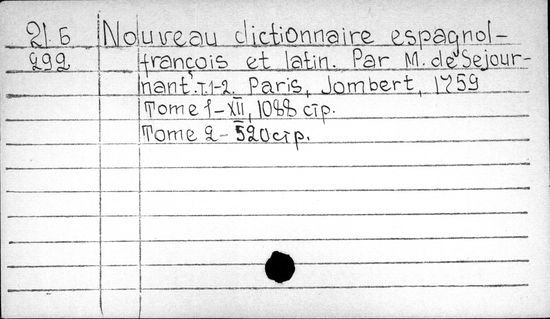 21.б Nouveau dictionnaire espagnol-
292 françois et latin. Par M. de Sejour-
nant. T.1-2. Paris, Jombert, 1759
Tome 1-XII, 1088 стр.
Tome 2-520 стр.